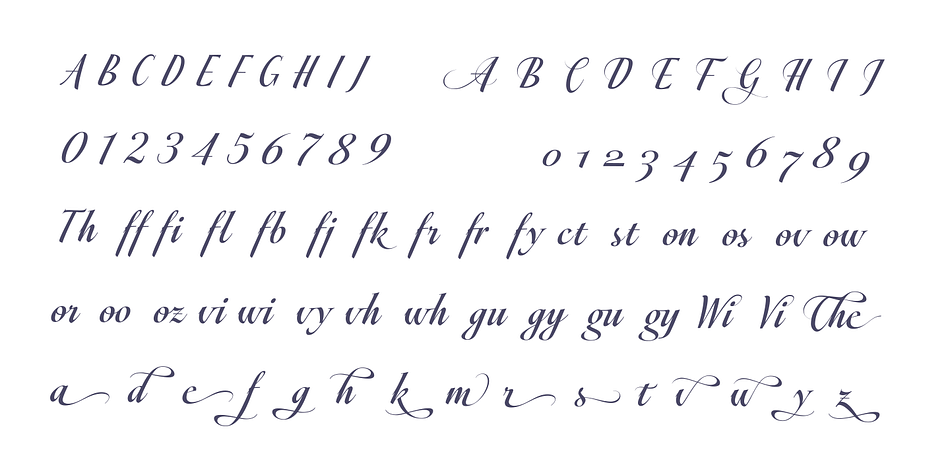 A B C D E F G H I J A B C D E F G H I J
0 1 2 3 4 5 6 7 8 9 0 1 2 3 4 5 6 7 8 9
Th ff fi fl fb fj fk fr fr fy ct st on os ov ow
or oo oz vi wi vy vh wh gu gy gu gy Wi Vi The
a d e f g h k m r s t v w y z